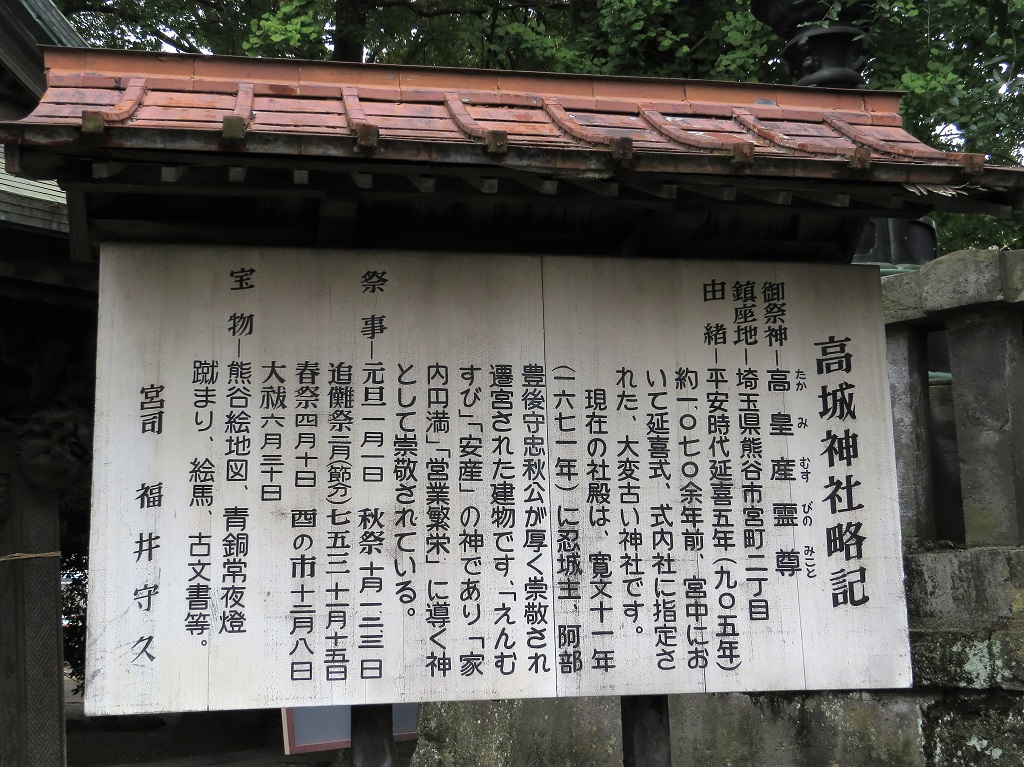 高城神社略記
御祭神―高皇産霊尊
たかみむすびのみこと
鎮座地―埼玉県熊谷市宮町二丁目
由緒―平安時代延喜五年(九〇五年)
約一、〇七〇余年前、宮中にお
いて延喜式、式内社に指定さ
れた、大変古い神社です。
現在の社殿は、寛文十一年
(一六七一年)に忍城主、阿部
豊後守忠秋公が厚く崇敬され
遷宮された建物です、「えんむ
すび」「安産」の神であり「家
内円満」「営業繁栄」に導く神
として崇敬されている。
祭事―元旦一月一日 秋祭十月一、二、三日
追儺祭二月(節分)七五三十一月十五日
春祭四月十日 酉の市十二月八日
大祓六月三十日
宝物―熊谷絵地図、青銅常夜燈
蹴まり、絵馬、古文書等。
宮司 福井守久